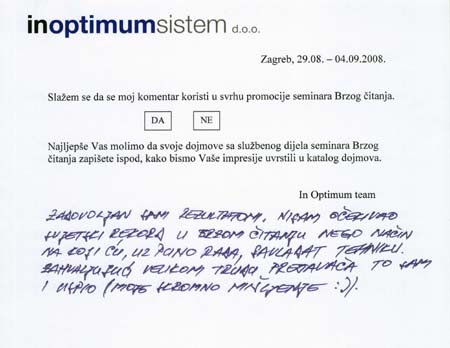 inoptimumsistem d.o.o.
Zagreb, 29.08. – 04.09.2008.
Slažem se da se moj komentar koristi u svrhu promocije seminara Brzog čitanja.
DA NE
Najljepše Vas molimo da svoje dojmove sa službenog dijela seminara Brzog
čitanja zapišete ispod, kako bismo Vaše impresije uvrstili u katalog dojmova.
In Optimum team
ZADOVOLJAN SAM REZULTATOM. NISAM OČEKIVAO
SVJETSKI REKORD U BRZOM ČITANJU NEGO NAČIN
NA KOJI ĆU, UZ PUNO RADA, SAVLADAT TEHNIKU.
ZAHVALJUJUĆ VELIKOM TRUDU PREDAVAČA TO SAM
I USPIO (MOJE SKROMNO MIŠLJENJE :)).